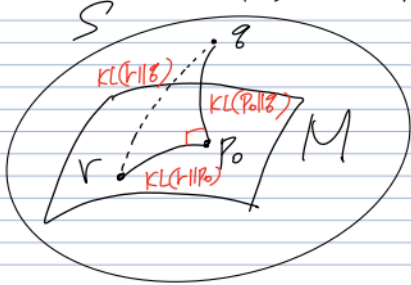 S
q
KL(r||q)
KL(p₀||q)
M
r
p₀
KL(r||p₀)